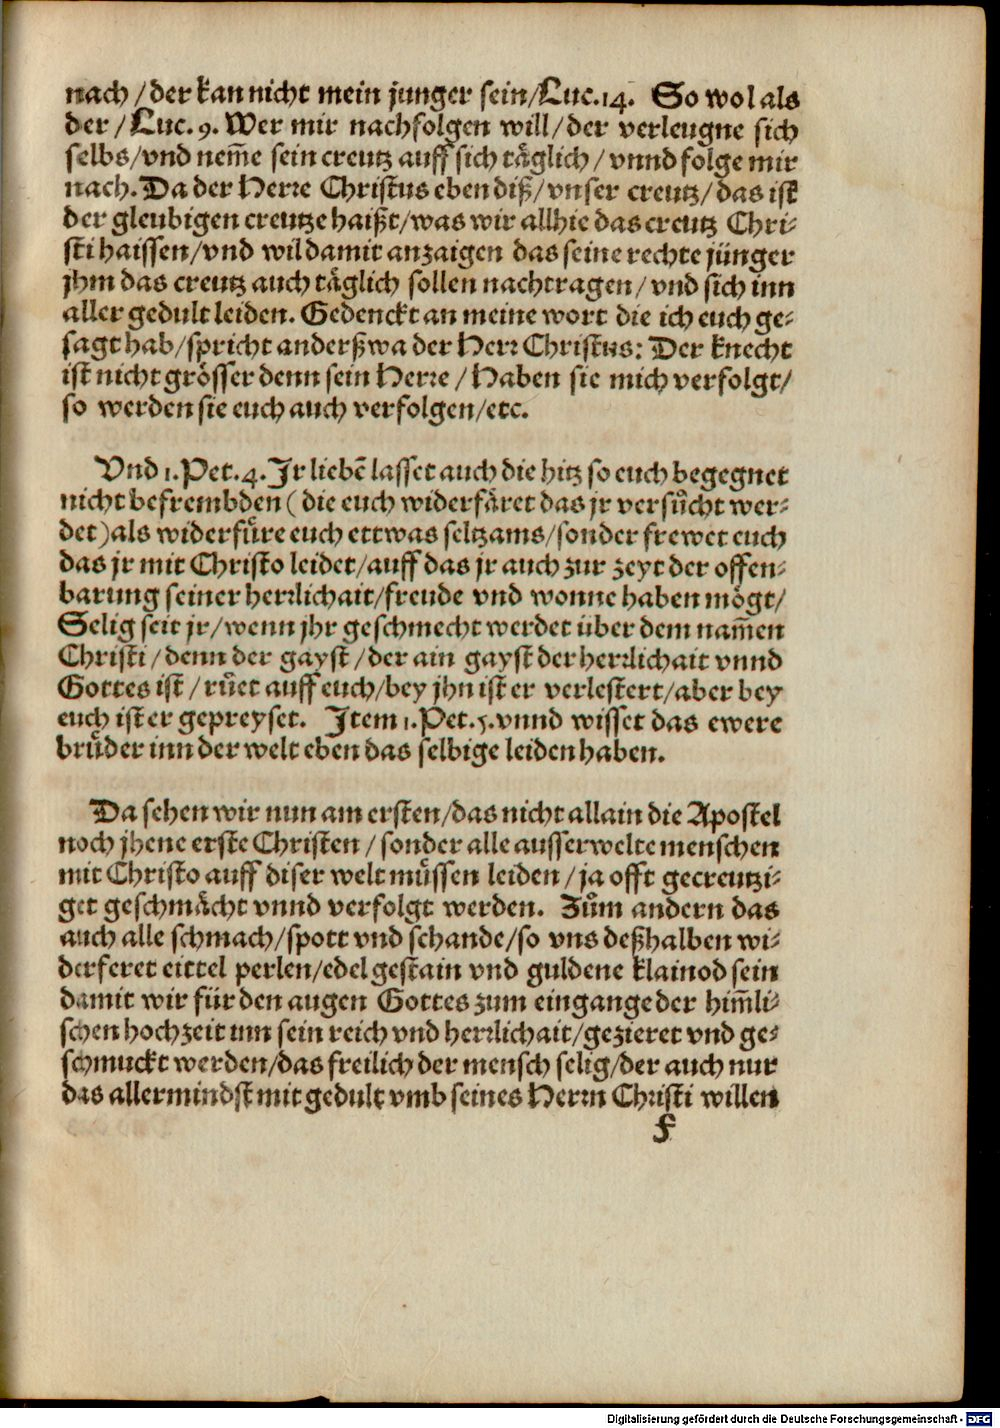 nach / der kan nicht mein junger sein / Luc. 14. So wol als
der / Luc. 9. Wer mir nachfolgen will / der verleugne sich
selbs / vnd nem̄e sein creutz auff sich täglich / vnnd folge mir
nach. Da der Herre Christus eben diß / vnser creutz / das ist
der gleubigen creutze haißt / was wir allhie das creutz Chri⸗
sti haissen / vnd wil damit anzaigen das seine rechte jünger
jhm das creutz auch täglich sollen nachtragen / vnd sich inn
aller gedult leiden. Gedenckt an meine wort die ich euch ge⸗
sagt hab / spricht anderßwa der Herr Christus: Der knecht
ist nicht grösser denn sein Herre / Haben sie mich verfolgt /
so werden sie euch auch verfolgen / etc.
Vnd 1. Pet. 4. Jr liebē lasset auch die hitz so euch begegnet
nicht befrembden ( die euch widerfäret das jr versůcht wer⸗
det ) als widerfüre euch ettwas seltzams / sonder frewet euch
das jr mit Christo leidet / auff das jr auch zur zeyt der offen⸗
barung seiner herrlichait / freude vnd wonne haben mögt /
Selig seit jr / wenn jhr geschmecht werdet über dem nam̄en
Christi / denn der gayst / der ain gayst der herrlichait vnnd
Gottes ist / růet auff euch / bey jhn ist er verlestert / aber bey
euch ist er gepreyset. Jtem 1. Pet. 5. vnnd wisset das ewere
brüder inn der welt eben das selbige leiden haben.
Da sehen wir nun am ersten / das nicht allain die Apostel
noch jhene erste Christen / sonder alle ausserwelte menschen
mit Christo auff diser welt müssen leiden / ja offt gecreutzi⸗
get geschmächt vnnd verfolgt werden. Zům andern das
auch alle schmach / spott vnd schande / so vns deßhalben wi⸗
derferet eittel perlen / edel gestain vnd guldene klainod sein
damit wir für den augen Gottes zum eingange der him̄li⸗
schen hochzeit um sein reich vnd herrlichait / gezieret vnd ge⸗
schmuckt werden / das freilich der mensch selig / der auch nur
das allermindst mit gedult vmb seines Herrn Christi willen
f
Digitalisierung gefördert durch die Deutsche Forschungsgemeinschaft - DFG